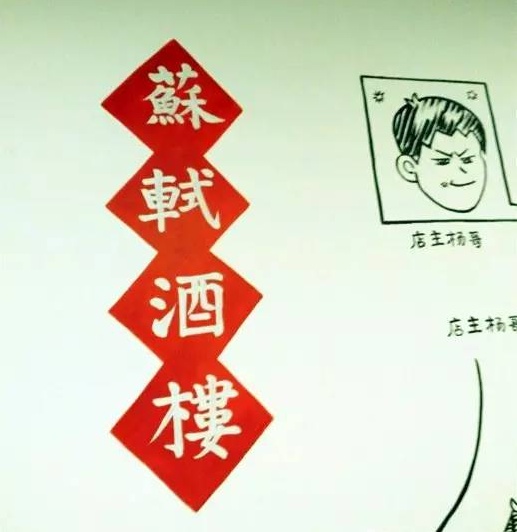 蘇軾酒樓
店主杨哥
店主杨哥